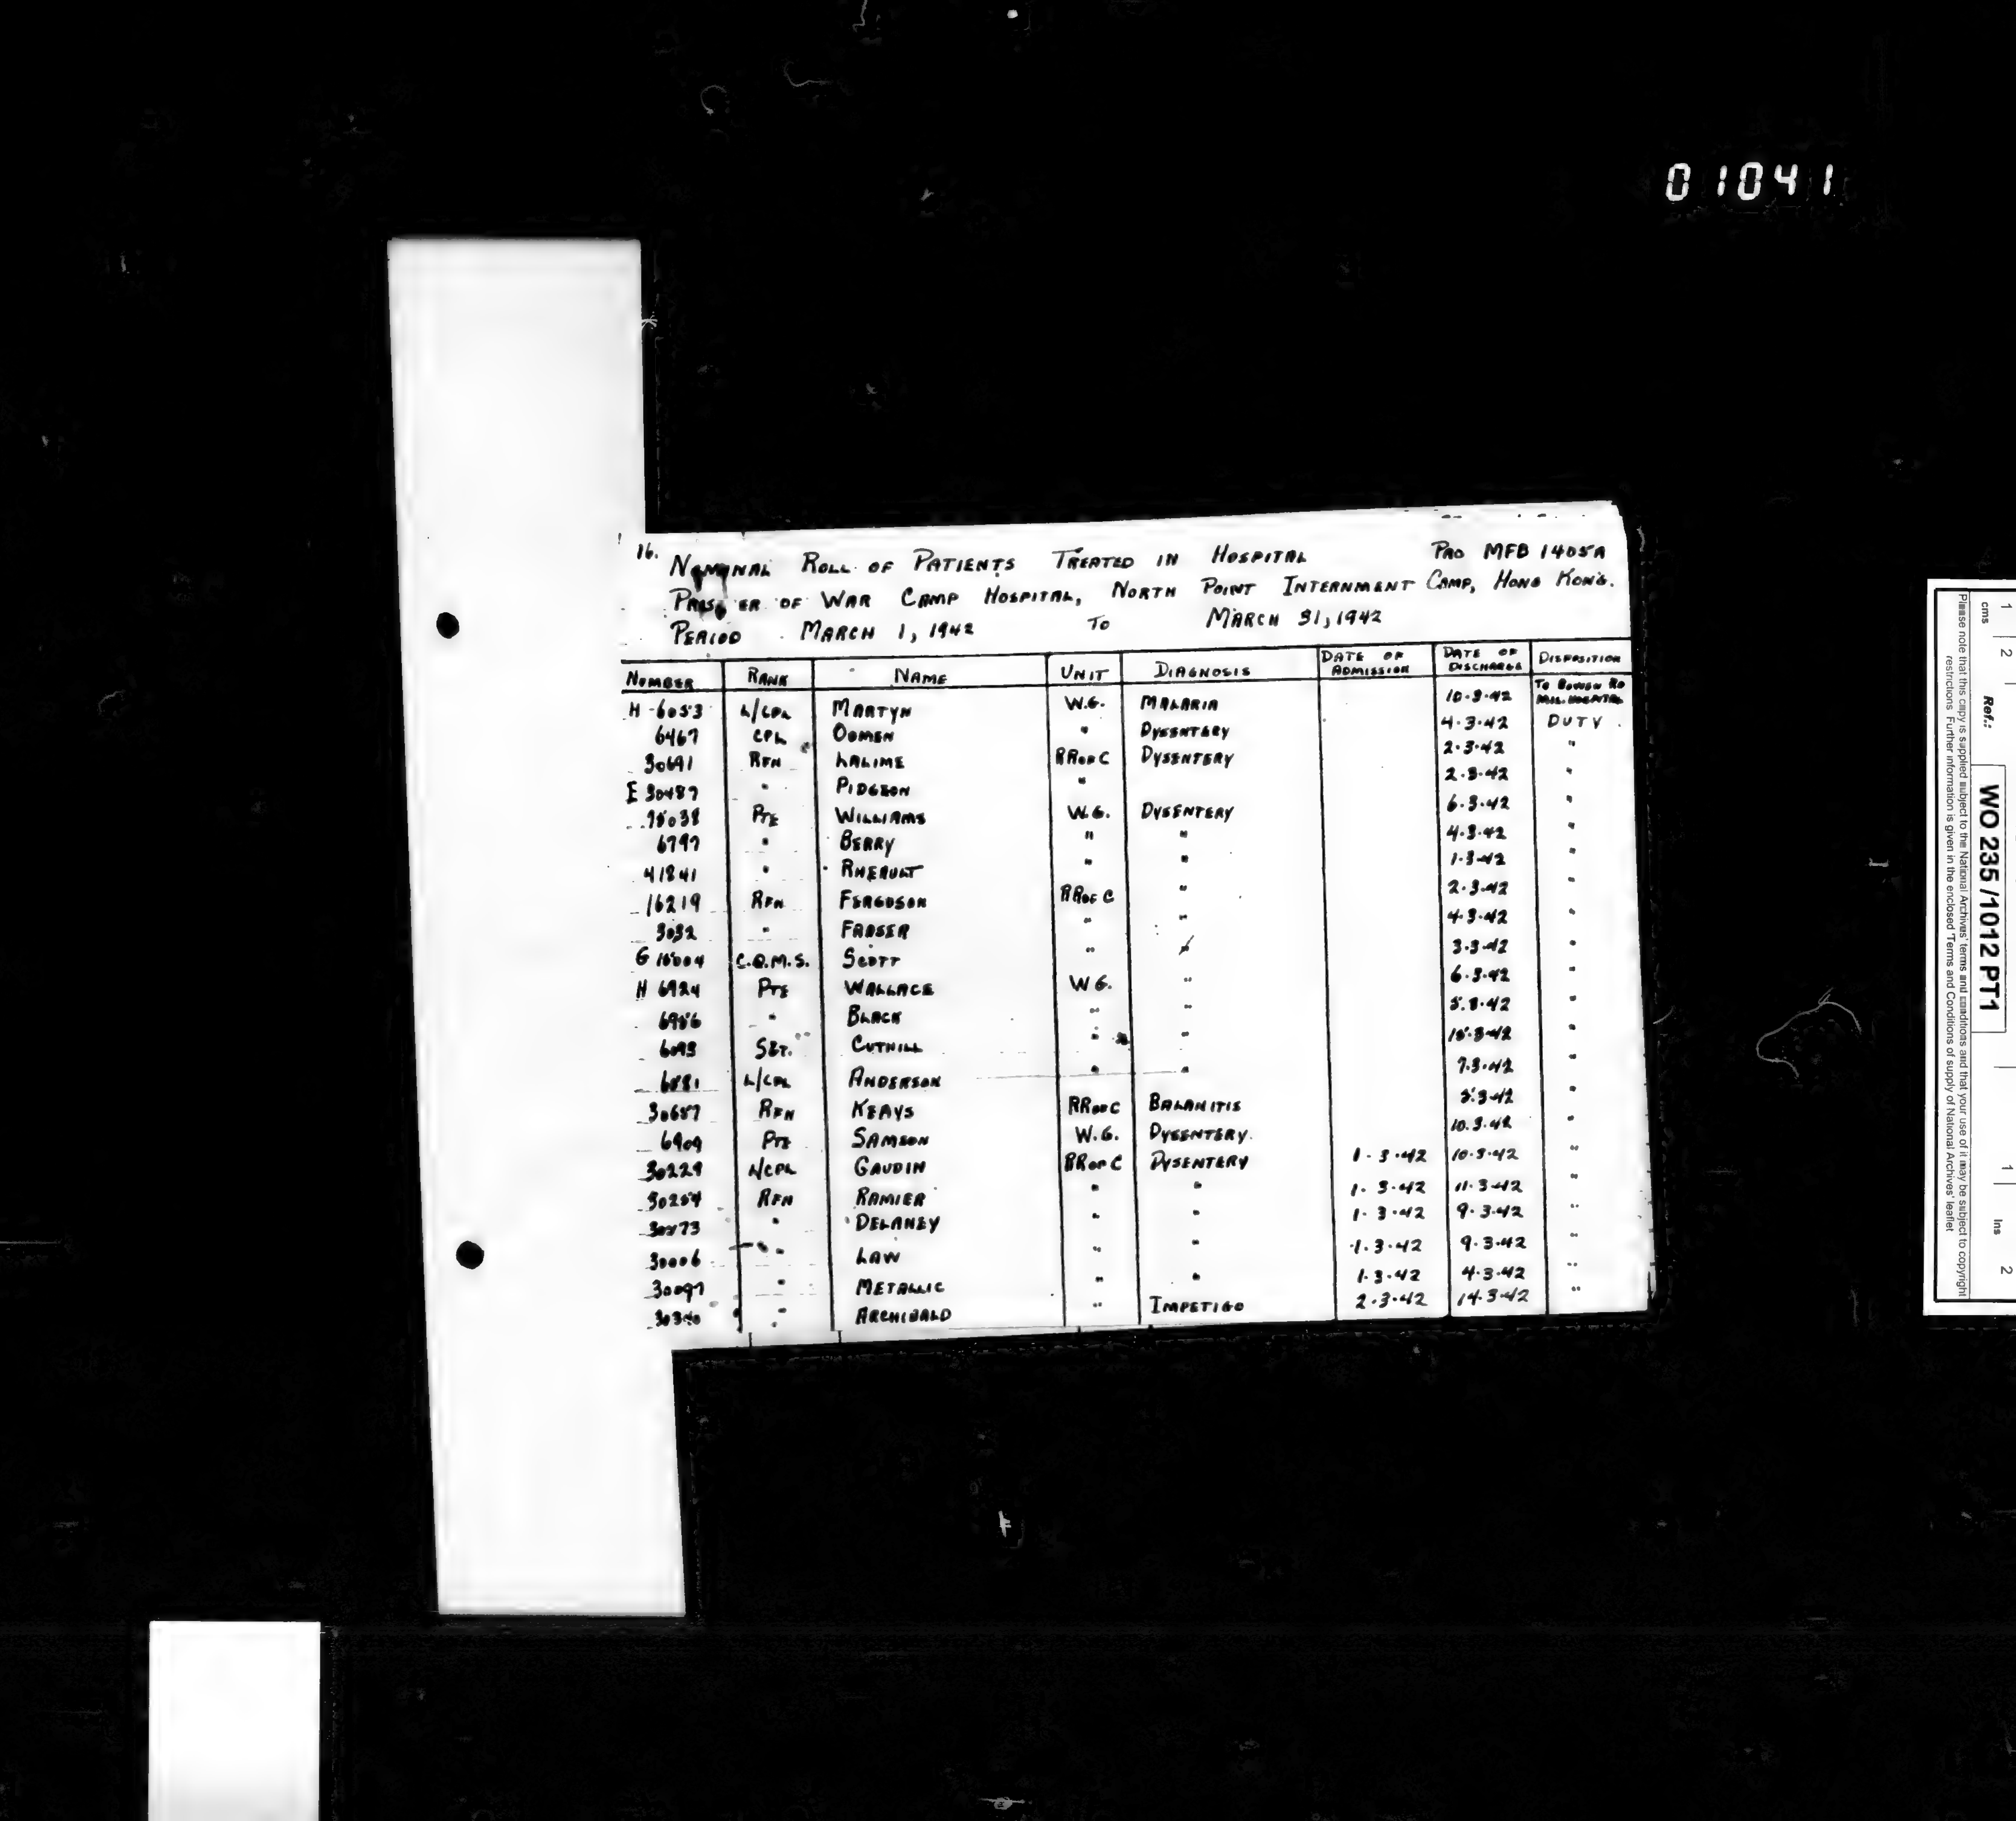 01041
16.
NOMINAL ROLL OF PATIENTS TREATED IN HOSPITAL PRO MFB 1405A
PRIS ER OF WAR CAMP HOSPITAL, NORTH POINT INTERNMENT CAMP, HONG KONG.
PERIOD MARCH 1, 1942 TO MARCH 31, 1942
NUMBER RANK NAME UNIT DIAGNOSIS DATE OF ADMISSION DATE OF DISCHARGE DISPOSITION
H-6053 L/CPL MARTYN W.G. MALARIA 10-3-42 TO BOWEN RD MIL. HOSPITAL
6467 CPL OOMEN " DYSENTERY 4-3-42 DUTY.
30691 RFN LALIME RR OF C DYSENTERY 2-3-42 "
E 30487 " PIDGEON " 2-3-42 "
PTE WILLIAMS W.G. DYSENTERY 6-3-42 "
6797 " BERRY " " 4-3-42 "
41841 " RHERULT " " 1-3-42 "
16219 RFN FERGUSON RR OF C " 2-3-42 "
3032 " FRASER " " 4-3-42 "
G C.Q.M.S. SCOTT " " 3-3-42 "
H 6924 PTE WALLACE W G. " 6-3-42 "
6986 " BLACK " " 5-3-42 "
6093 SGT. CUTHILL " " 15-3-42 "
L/CPL ANDERSON " " 7-3-42 "
30657 RFN KEAYS RR OF C BALANITIS 3-42 "
6909 PTE SAMSON W.G. DYSENTERY. 10-3-42 "
30229 L/CPL GAUDIN RR OF C DYSENTERY 1-3-42 10-3-42 "
30254 RFN RAMIER " " 1-3-42 11-3-42 "
" DELANEY " " 1-3-42 9-3-42 "
30006 " LAW " " 1-3-42 9-3-42 "
30097 " METALLIC " " 1-3-42 4-3-42 "
30340 " ARCHIBALD " IMPETIGO 2-3-42 14-3-42 "
1 2
cms
Ref.:
WO 235/1012 PT1
1 2
Ins
Please note that this copy is supplied subject to the National Archives' terms and conditions and that your use of it may be subject to copyright
restrictions. Further information is given in the enclosed 'Terms and Conditions of supply of National Archives' leaflet